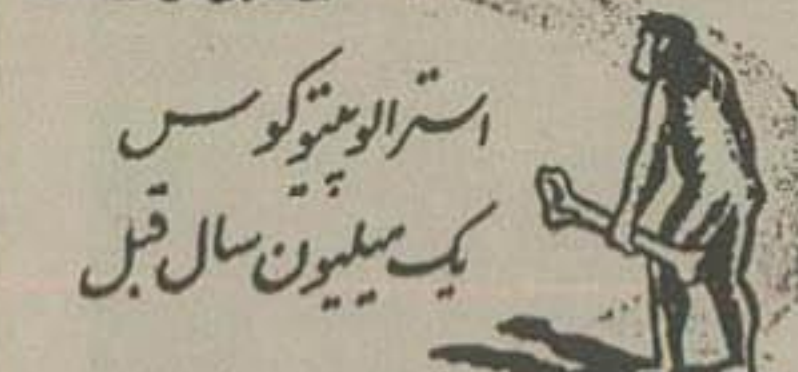 استرالوپیتوکوس
یک میلیون سال قبل